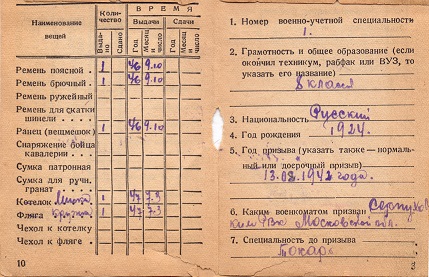 Наименование вещей
Количество
ВРЕМЯ
Выдано
Сдано
Выдачи
Сдачи
Год
Месяц и число
Год
Месяц и число
Ремень поясной . 1 46 9.10
Ремень брючный . 1 46 9.10
Ремень ружейный
Ремень для скатки
шинели . .
Ранец (вещмешок) 1 46 9.10
Снаряжение бойца
кавалерии .
Сумка патронная
Сумка для ручн.
гранат .
Котелок 1 47 7.3
Фляга кружка 1 47 7.3
Чехол к котелку
Чехол к фляге .
10
1. Номер военно-учетной специальности
1.
2. Грамотность и общее образование (если
окончил техникум, рабфак или ВУЗ, то
указать его название)
8 класса
3. Национальность Русский
4. Год рождения 1924.
5. Год призыва (указать также — нормальный или досрочный призыв)
13.08.1942 года.
6. Каким военкоматом призван Серпухов
ким РВК Московской обл.
7. Специальность до призыва
Токарь
3